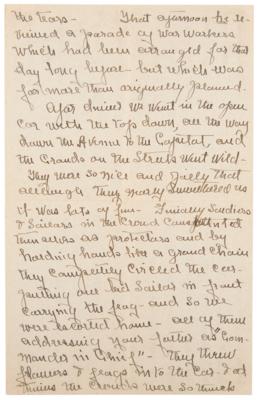 the tears - That afternoon he re-
viewed a parade of War Workers
which had been arranged for that
day long before - but which was
far more than originally planned.
After dinner we went in the open
car with the top down, all the way
down the Avenue to the Capitol, and
the Crowds on the Streets went Wild -
They were so nice and jolly that
although they nearly smothered us
it was lots of fun - Finally Soldiers
& Sailors in the Crowd
themselves as protectors and by
holding hands like a grand chain
they completely circled the car -
putting one big Sailor in front
carrying the flag - and so we
were escorted home - all of them
addressing your father as "Com-
mander in Chief" - They threw
flowers & flags into the Car & at
times the crowds were so thick